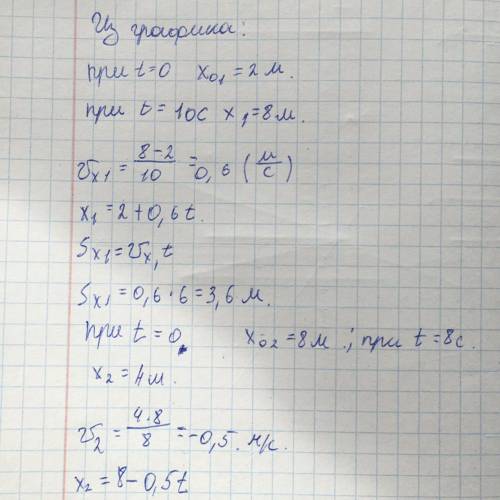 Из графика:
при t=0 x₀₁ = 2 м.
при t = 10с x₁ = 8 м.
υx₁ = 8-2/10 = 0,6 (м/с)
x₁ = 2 + 0,6t.
Sx₁ = υx₁ t
Sx₁ = 0,6 · 6 = 3,6 м.
при t = 0. x₀₂ = 8 м ; при t = 8 с.
x₂ = 4 м.
υ₂ = 4·8/8 = -0,5. м/с.
x₂ = 8 - 0,5t